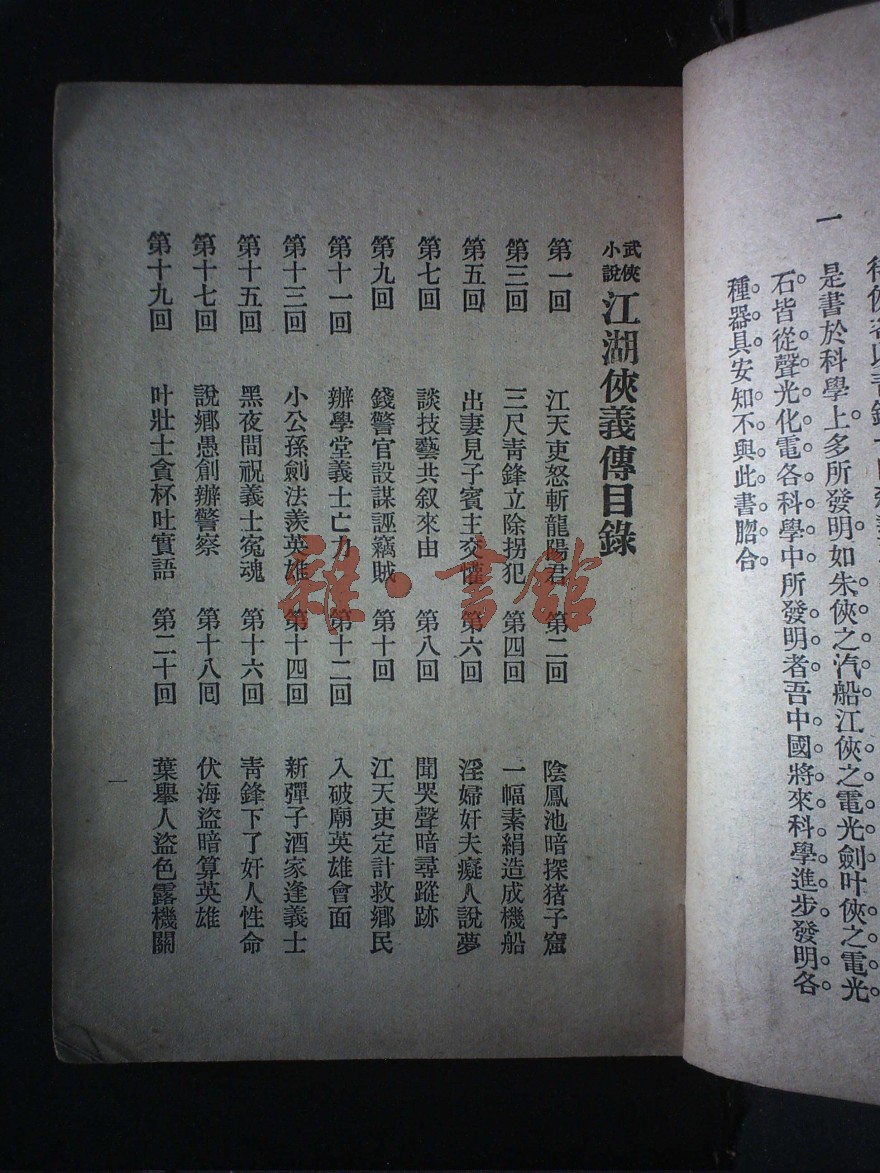 種器具安知不與此書脗合。
石皆從聲光化電各科學中所發明者吾中國將來科學進步發明各
一　是書於科學上多所發明如朱俠之汽船江俠之電光劍叶俠之電光
武俠小說 江湖俠義傳目錄
第一回　江天吏怒斬龍陽君　第二回　陰鳳池暗探猪子窟
第三回　三尺靑鋒立除拐犯　第四回　一幅素絹造成機船
第五回　出妻見子賓主交懽　第六回　淫婦奸夫癡人說夢
第七回　談技藝共叙來由　第八回　聞哭聲暗尋蹤跡
第九回　錢警官設謀誣竊賊　第十回　江天吏定計救鄉民
第十一回　辦學堂義士亡力　第十二回　入破廟英雄會面
第十三回　小公孫劍法羨英雄　第十四回　新彈子酒家逢義士
第十五回　黑夜間祝義士冤魂　第十六回　靑鋒下了奸人性命
第十七回　說鄉愚創辦警察　第十八回　伏海盜暗算英雄
第十九回　叶壯士貪杯吐實語　第二十回　葉舉人盜色露機關
一
雜·書館